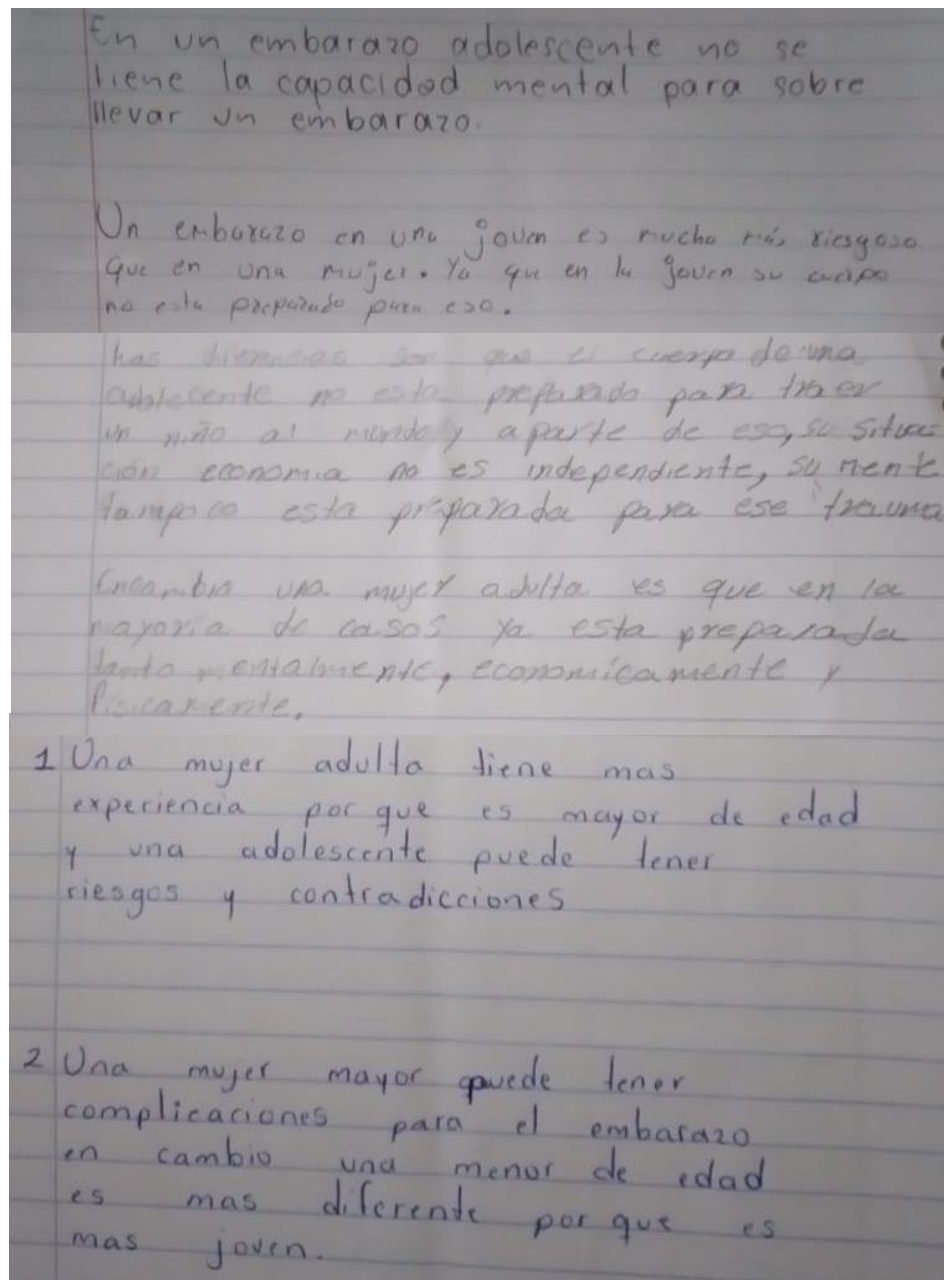 En un embarazo adolescente no se
tiene la capacidad mental para sobre
llevar un embarazo.
Un embarazo en una joven es mucho más riesgoso
que en una mujer. Ya que en la joven su cuerpo
no esta preparado para eso.
las diferencias son que el cuerpo de una
adolecente no esta preparado para traer
un niño al mundo y aparte de eso, su situa
ción economia no es independiente, su mente
tampoco esta preparada para ese trauma
Encambio una mujer adulta es que en la
mayoria de casos ya esta preparada
tanto mentalmente, economicamente y
fisicamente.
1 Una mujer adulta tiene mas
experiencia por que es mayor de edad
y una adolescente puede tener
riesgos y contradicciones
2 Una mujer mayor puede tener
complicaciones para el embarazo
en cambio una menor de edad
es mas diferente por que es
mas joven.